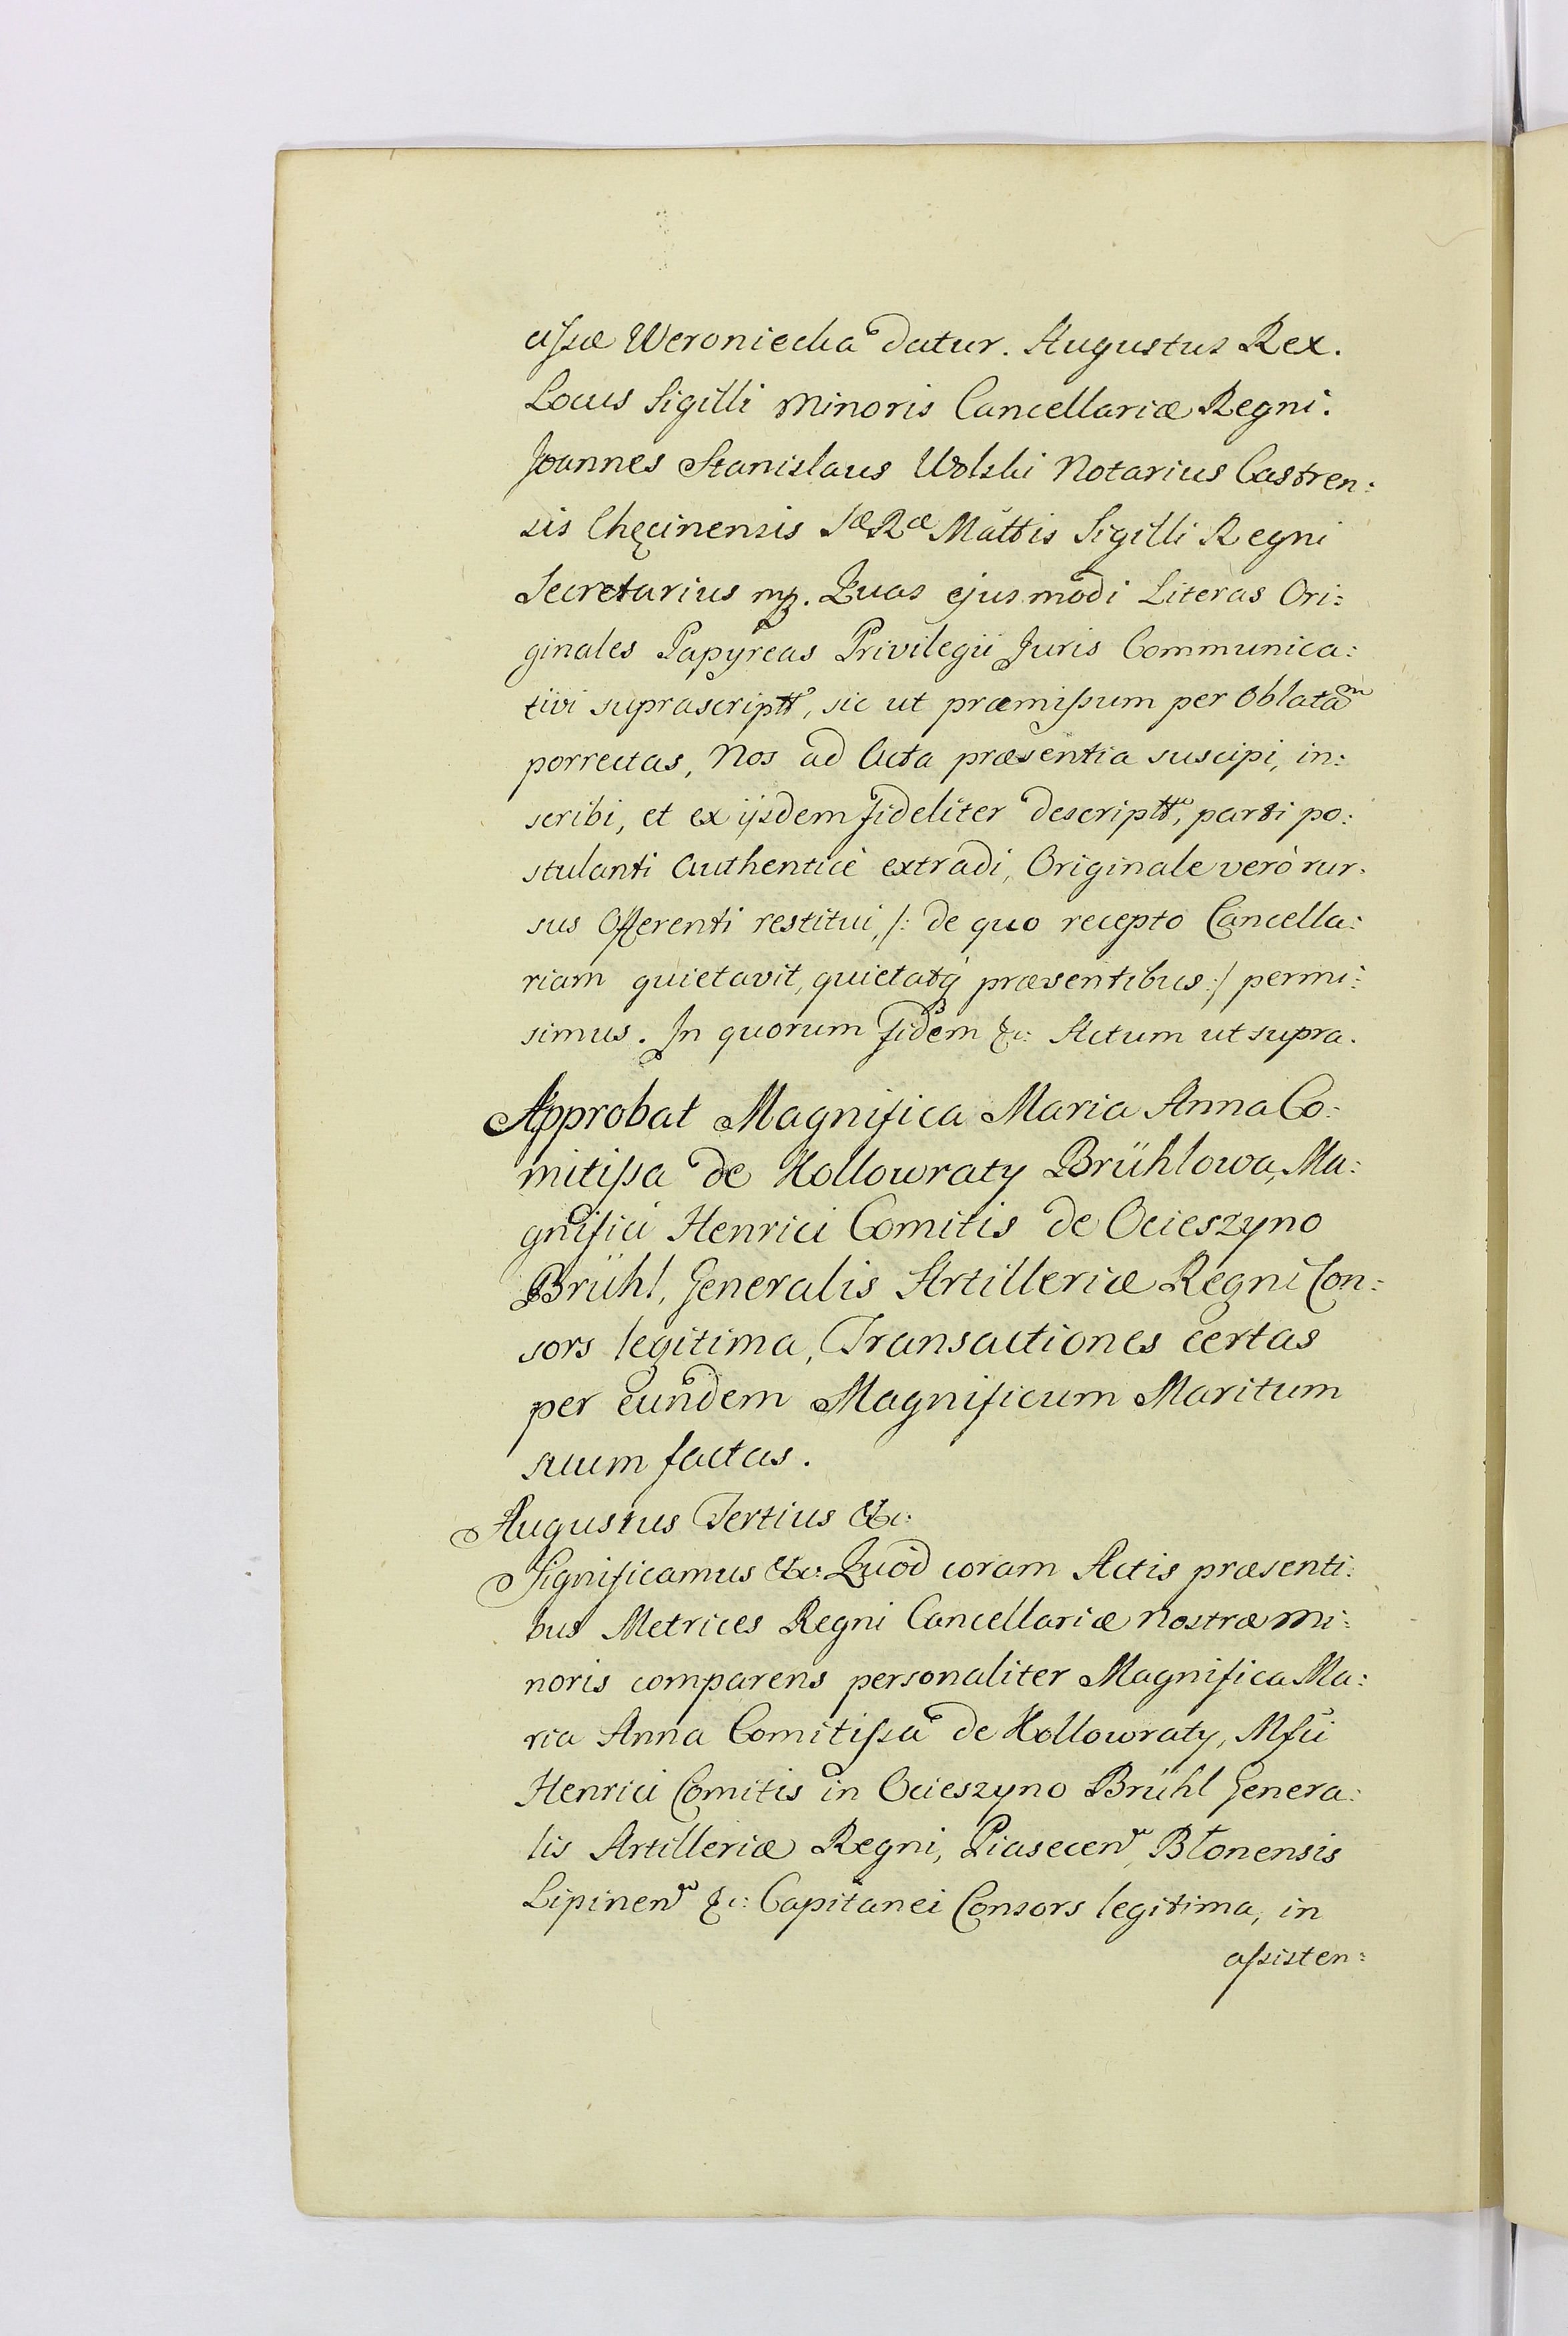 cissæ Weroniecka datur. Augustus Rex.
Locus Sigilli Minoris Cancellariæ Regni.
Joannes Stanislaus Wolski Notarius Castren:
sis Chęcinensis Sæ Ræ Mattis Sigilli Regni
Secretarius mp. Quas ejusmodi Literas Ori:
ginales Papyreas Privilegii Juris Communica:
tivi suprascriptt, sic ut præmissum per Oblatam
porrectas, Nos ad Acta præsentia suscipi, in:
scribi, et ex iisdem fideliter descriptt, parti po:
stulanti Authenticè extradi, Originale verò rur:
sus Offerenti restitui, /: de quo recepto Cancella:
riam quietavit, quietatq præsentibus :/ permi:
simus. In quorum fidem &c: Actum ut supra.
Approbat Magnifica Maria Anna Co:
mitissa de Kollowraty Brühlowa, Ma:
gnifici Henrici Comitis de Ocieszyno
Brühl, Generalis Artilleriæ Regni Con:
sors legitima, Transactiones certas
per eundem Magnificum Maritum
suum factas.
Augustus Tertius &c:
Significamus &c: Quod coram Actis præsenti:
bus Metrices Regni Cancellariæ Nostræ Mi:
noris comparens personaliter Magnifica Ma:
ria Anna Comitissa de Kollowraty, Mfci
Henrici Comitis in Ocieszyno Brühl Genera:
lis Artilleriæ Regni, Piasecen, Błonensis
Lipinen &c: Capitanei Consors legitima, in
assisten: